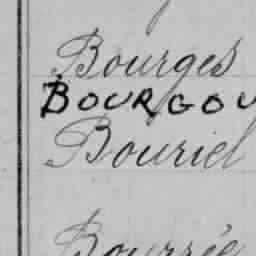 Bourges
BOURGOU
Bouriel
Bourrée